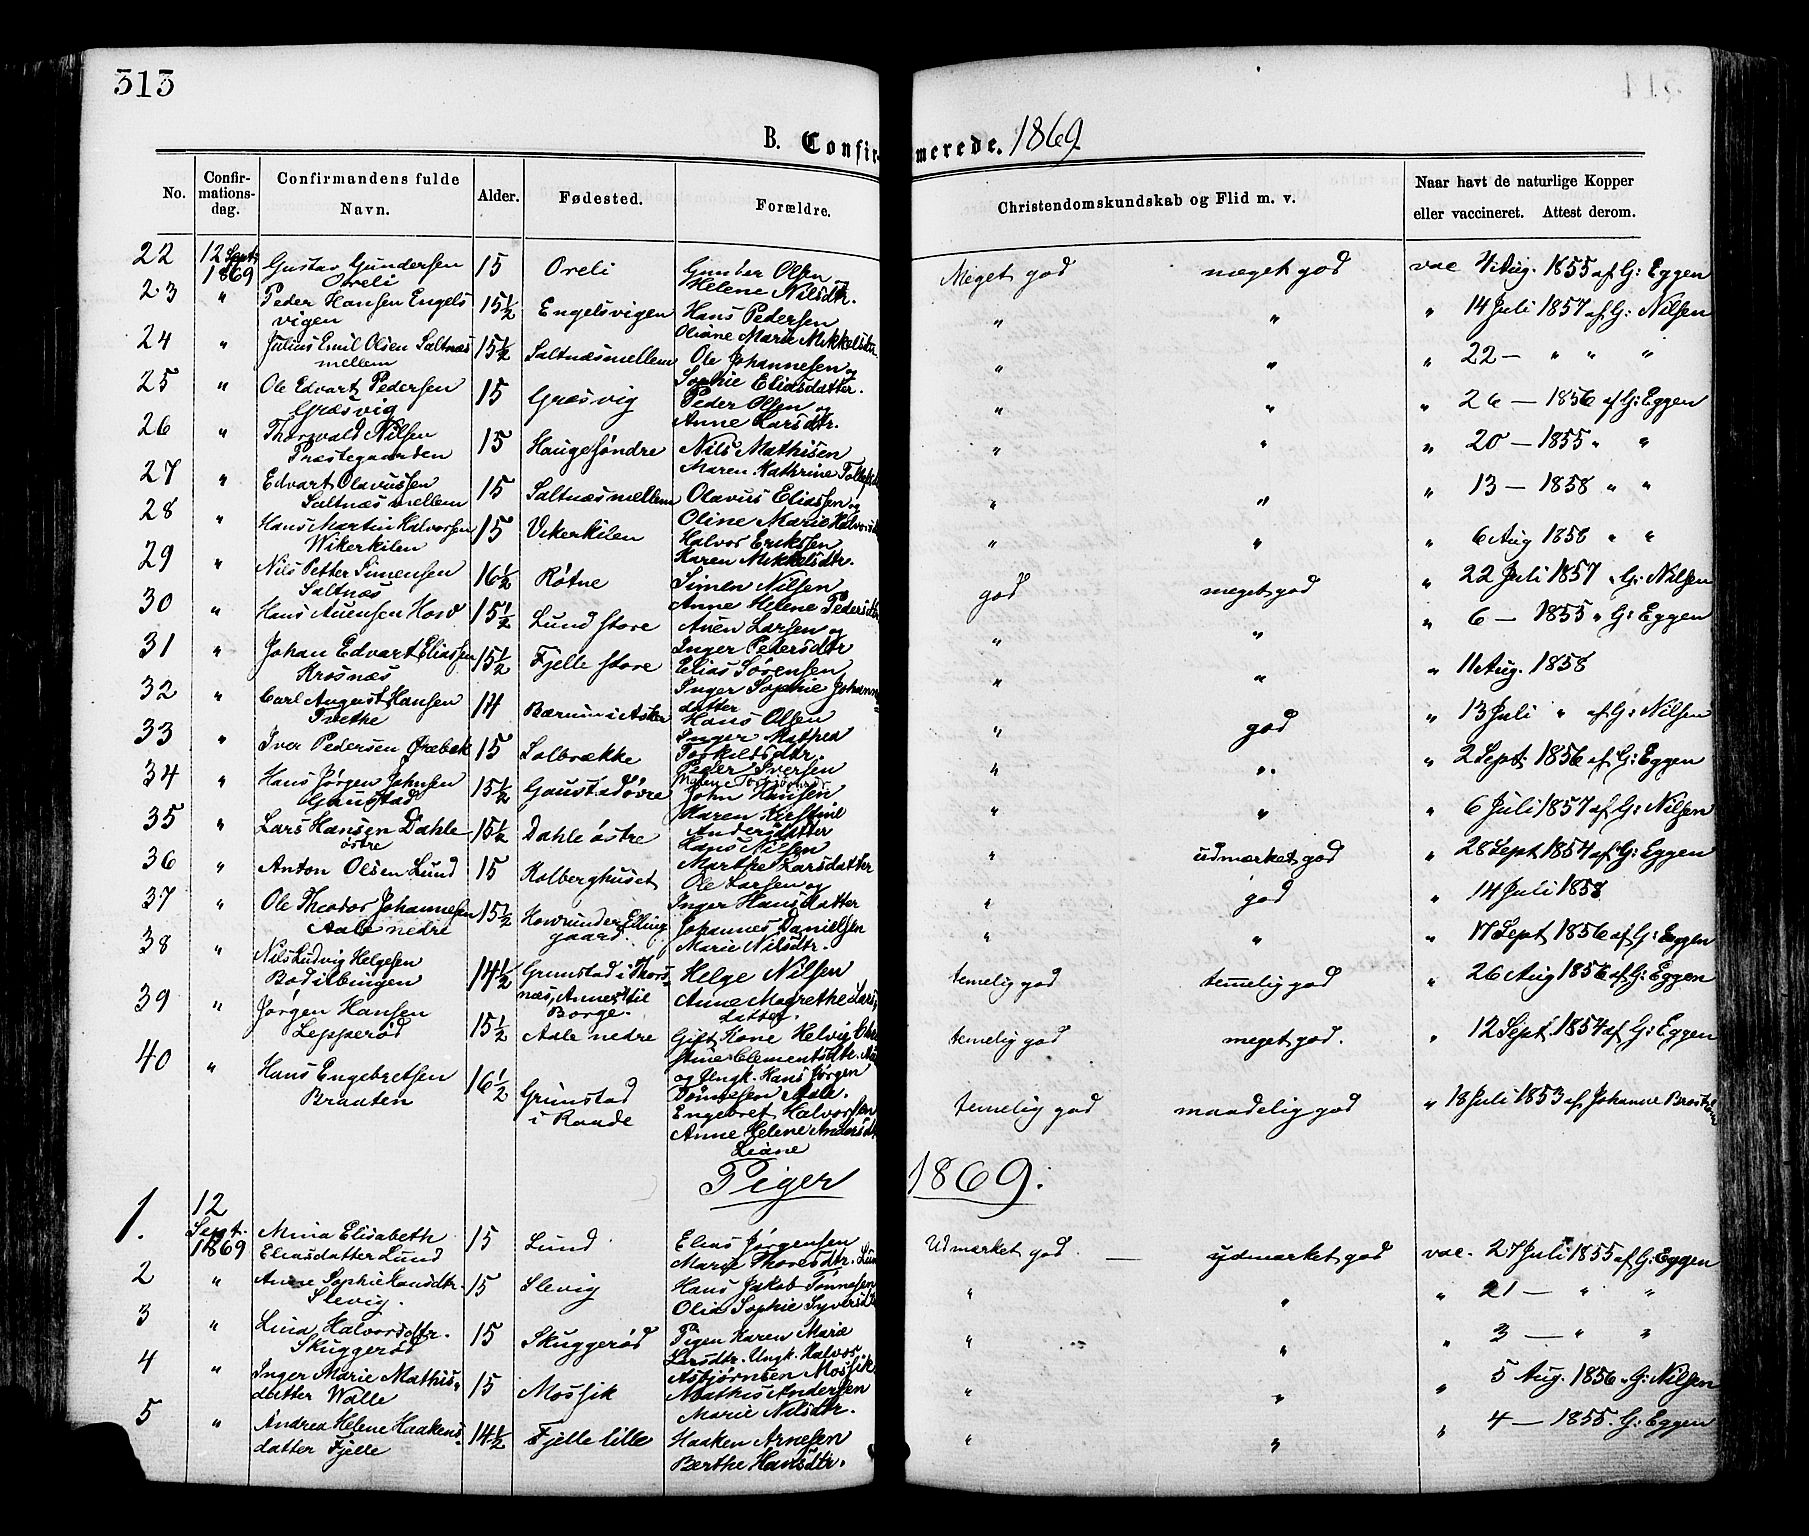 313
B. Confirmerede. 1869.
No. Confirmationsdag. Confirmandens fulde Navn. Alder. Fødested. Forældre. Christendomskundskab og Flid m. v. Naar havt de naturlige Kopper eller vaccineret. Attest derom.
22 12 Sept. 1869 Gustav Gundersen Oreli 15 Oreli Gunder Olsen Helene Nilsdtr. Meget god meget god vac Aug. 1855 af G: Eggen
23 " Peder Hansen Engelsvigen 15½ Engelsvigen Hans Pedersen Oliane Marie Mikkelsdtr " " " 14 Juli 1857 af G: Nilsen
24 " Julius Emil Olsen Saltnæs mellem 15½ Saltnæs mellem Ole Johannesen og Sophie Eliasdatter. " " " 22 — " " "
25 " Ole Edvart Pedersen Græsvig 15 Græsvig Peder Olsen og Anne Larsdtr. " " " 26 — 1856 af G: Eggen
26 " Thorvald Nilsen Præstegaarden 15 Hauge søndre Nils Mathisen Maren Kathrine " " " 20 — 1855 " "
27 " Edvart Olavussen Saltnæs mellem 15 Saltnæs mellem Olavus Eliassen og Oline Marie Halvorsd " " " 13 — 1858 " "
28 " Hans Martin Halvorsen Wikerkilen 15 Vikerkilen Halvor Erikssen Karen Mikkelsdtr. " " " 6 Aug 1858 " "
29 " Nils Petter Simensen Saltnæs 16½ Røtne Simen Nilsen Anne Helene Pedersdtr god meget god " 22 Juli 1857 " G: Nilsen
30 " Hans Auensen Hord 15½ Lund store Auen Larsen og Inger Pedersdtr " " " 6 — 1855 " G: Eggen
31 " Johan Edvart Eliassen Krosnæs 15½ Fjelle store Elias Sørensen Inger Sophie Johannesdatter " " " 11 Aug. 1858
32 " Carl August Hansen Tvethe 14 Bærum i Asker Hans Olsen Inger Mathea Torkildsdtr " god " 13 Juli " af G: Nilsen
33 " Iver Pedersen Ørebæk 15 Solbrække Peder Iversen " " " 2 Sept. 1856 af G: Eggen
34 " Hans Jørgen Johnsen Gaustad 15½ Gaustad øvre John Hansen Karen Kirstine Andersdatter " " " 6 Juli 1857 af G: Nilsen
35 " Lars Hansen Dahle østre 15½ Dahle østre Hans Nilsen Marthe Larsdatter " udmærket god " 28 Sept 1854 af G: Eggen
36 " Anton Olsen Lund 15 Kolberghuset Ole Larsen og Inger Hansdatter " god " 14 Juli 1858
37 " Ole Theodor Johannesen Aale nedre 15½ Hov under Ellingaard. Johannes Danielsen Marie Nilsdtr. " " " 17 Sept 1856 af G: Eggen
38 " Nils Ludvig Helgesen Bodilbingen 14½ Grimstad i Thorsnæs, Annex til Borge. Helge Nilsen Anne Magrethe Larsdatter. temelig god temelig god " 26 Aug 1856 af G: Eggen
39 " Jørgen Hansen Lepperød 15½ Aale nedre Gift Kone Helvig Christine Clementsdtr. og Ungk. Hans Jørgen Tønnesen Aale. temelig god meget god. " 12 Sept 1854 af G: Eggen
40 " Hans Engebretsen Braaten 16½ Grimstad i Raade Engebret Halvorsen Anne Helene Andersdtr temelig god maadelig god " 18 Juli 1853 af Johanne
Piger 1869:
1. 12 Sept. 1869 Mina Elisabeth Eliasdatter Lund 15 Lund Elias Jørgensen Marie Thoresdtr. Lund Udmærket god — udmærket god vac. 27 Juli 1855 af G: Eggen
2 " Anne Sophie Hansdtr. Slevig. 15 Slevig Hans Jakob Tønnesen Olia Sophie Syversd " " " 21 — " "
3 " Lina Halvorsdtr. Skuggerød 15 Skuggerød Pigen Karen Marie Larsdtr. Ungk. Halvor Asbjørnsen Mossik " " " 3 — " "
4 " Inger Marie Mathisdatter Walle 15 Mossik Mathis Andersen Marie Nilsdtr. " " " 5 Aug. 1856 " G: Nilsen
5 " Andrea Helene Haakensdatter Fjelle 14½ Fjelle lille Haaken Arnesen Berthe Hansdtr. " " " 4 — 1855. G: Eggen